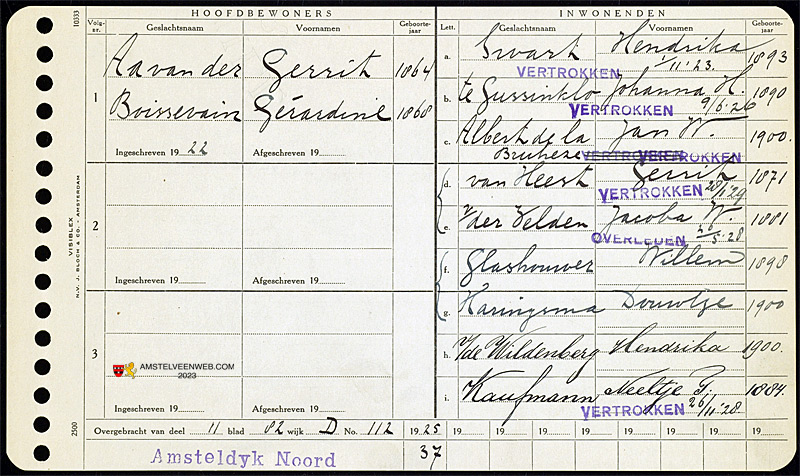 10333
HOOFDBEWONERS
Volg-nr.
Geslachtsnaam
Voornamen
Geboorte-jaar
1
Aa van der Gerrit 1864
Boissevain Gérardine 1868
Ingeschreven 19 22 Afgeschreven 19
2
Ingeschreven 19 Afgeschreven 19
3
AMSTELVEENWEB.COM
2023
Ingeschreven 19 Afgeschreven 19
VISIBLEX
N.V. J. BLOCH & CO. - AMSTERDAM
2500
INWONENDEN
Lett.
Geslachtsnaam
Voornaam
Geboorte-jaar
a. Swart Hendrika 1893
VERTROKKEN 1/11 '23.
b. te Gussinklo Johanna H. 1890
VERTROKKEN 9/6.26
c. Albert de la Jan W. 1900.
Bruheze VERTROKKEN VERTROKKEN
d. van Heest Gerrit 1871
VERTROKKEN
e. v/der Velden Jacoba W. 1881
OVERLEDEN 26/5.28
f. Glashouwer Willem 1898
g. Haringsma Douwtje 1900
h. v/de Wildenberg Hendrika 1900.
i. Kaufmann Neeltje G. 1884.
VERTROKKEN 26/11 '28
Overgebracht van deel 11 blad 82 wijk D No. 112 19 25 19 19 19 19 19 19 19
Amsteldyk Noord 37